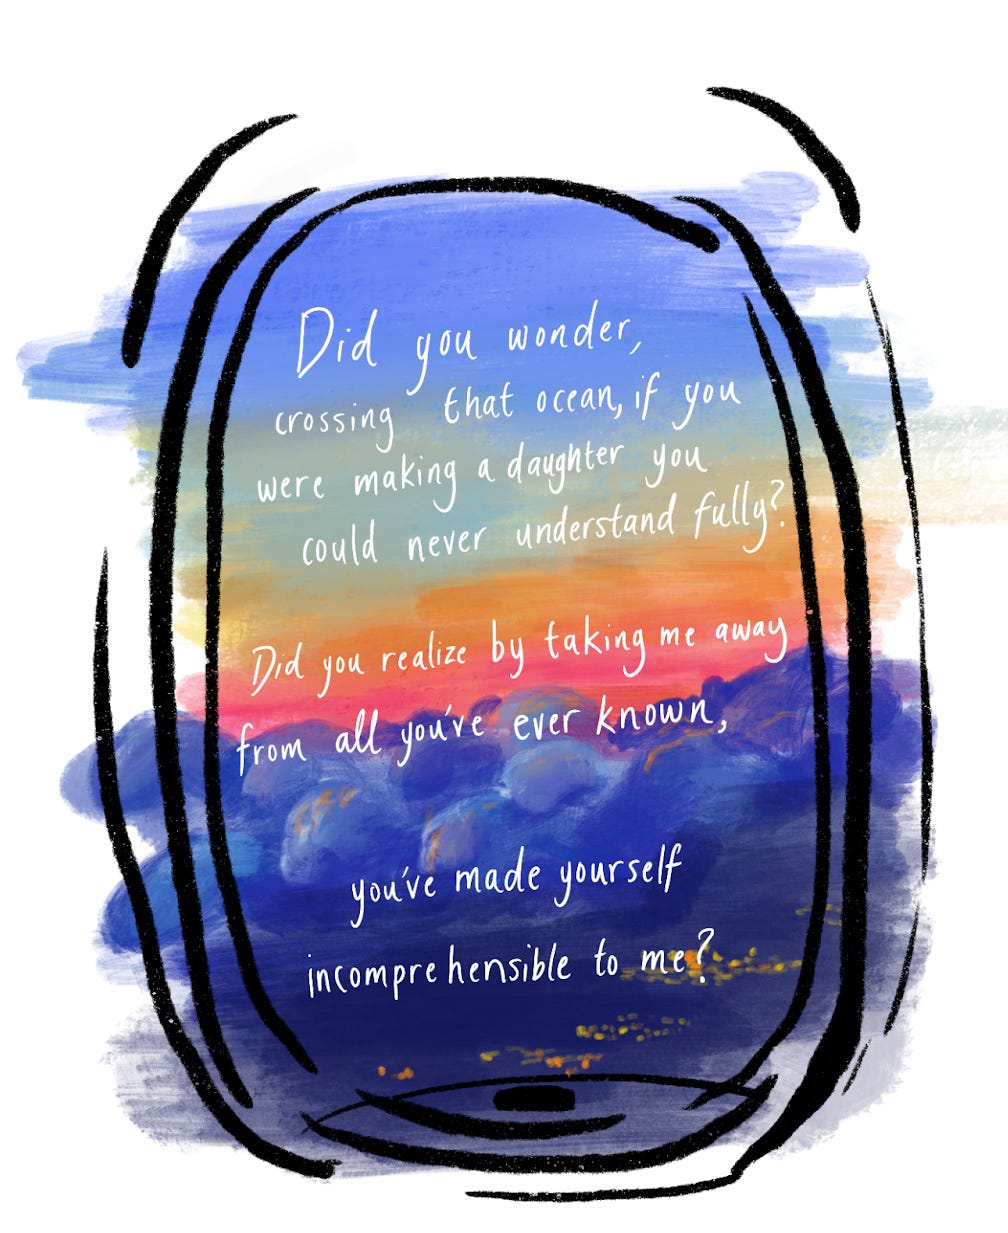 Did you wonder,
crossing that ocean, if you
were making a daughter you
could never understand fully?
Did you realize by taking me away
from all you've ever known,
you've made yourself
incomprehensible to me?